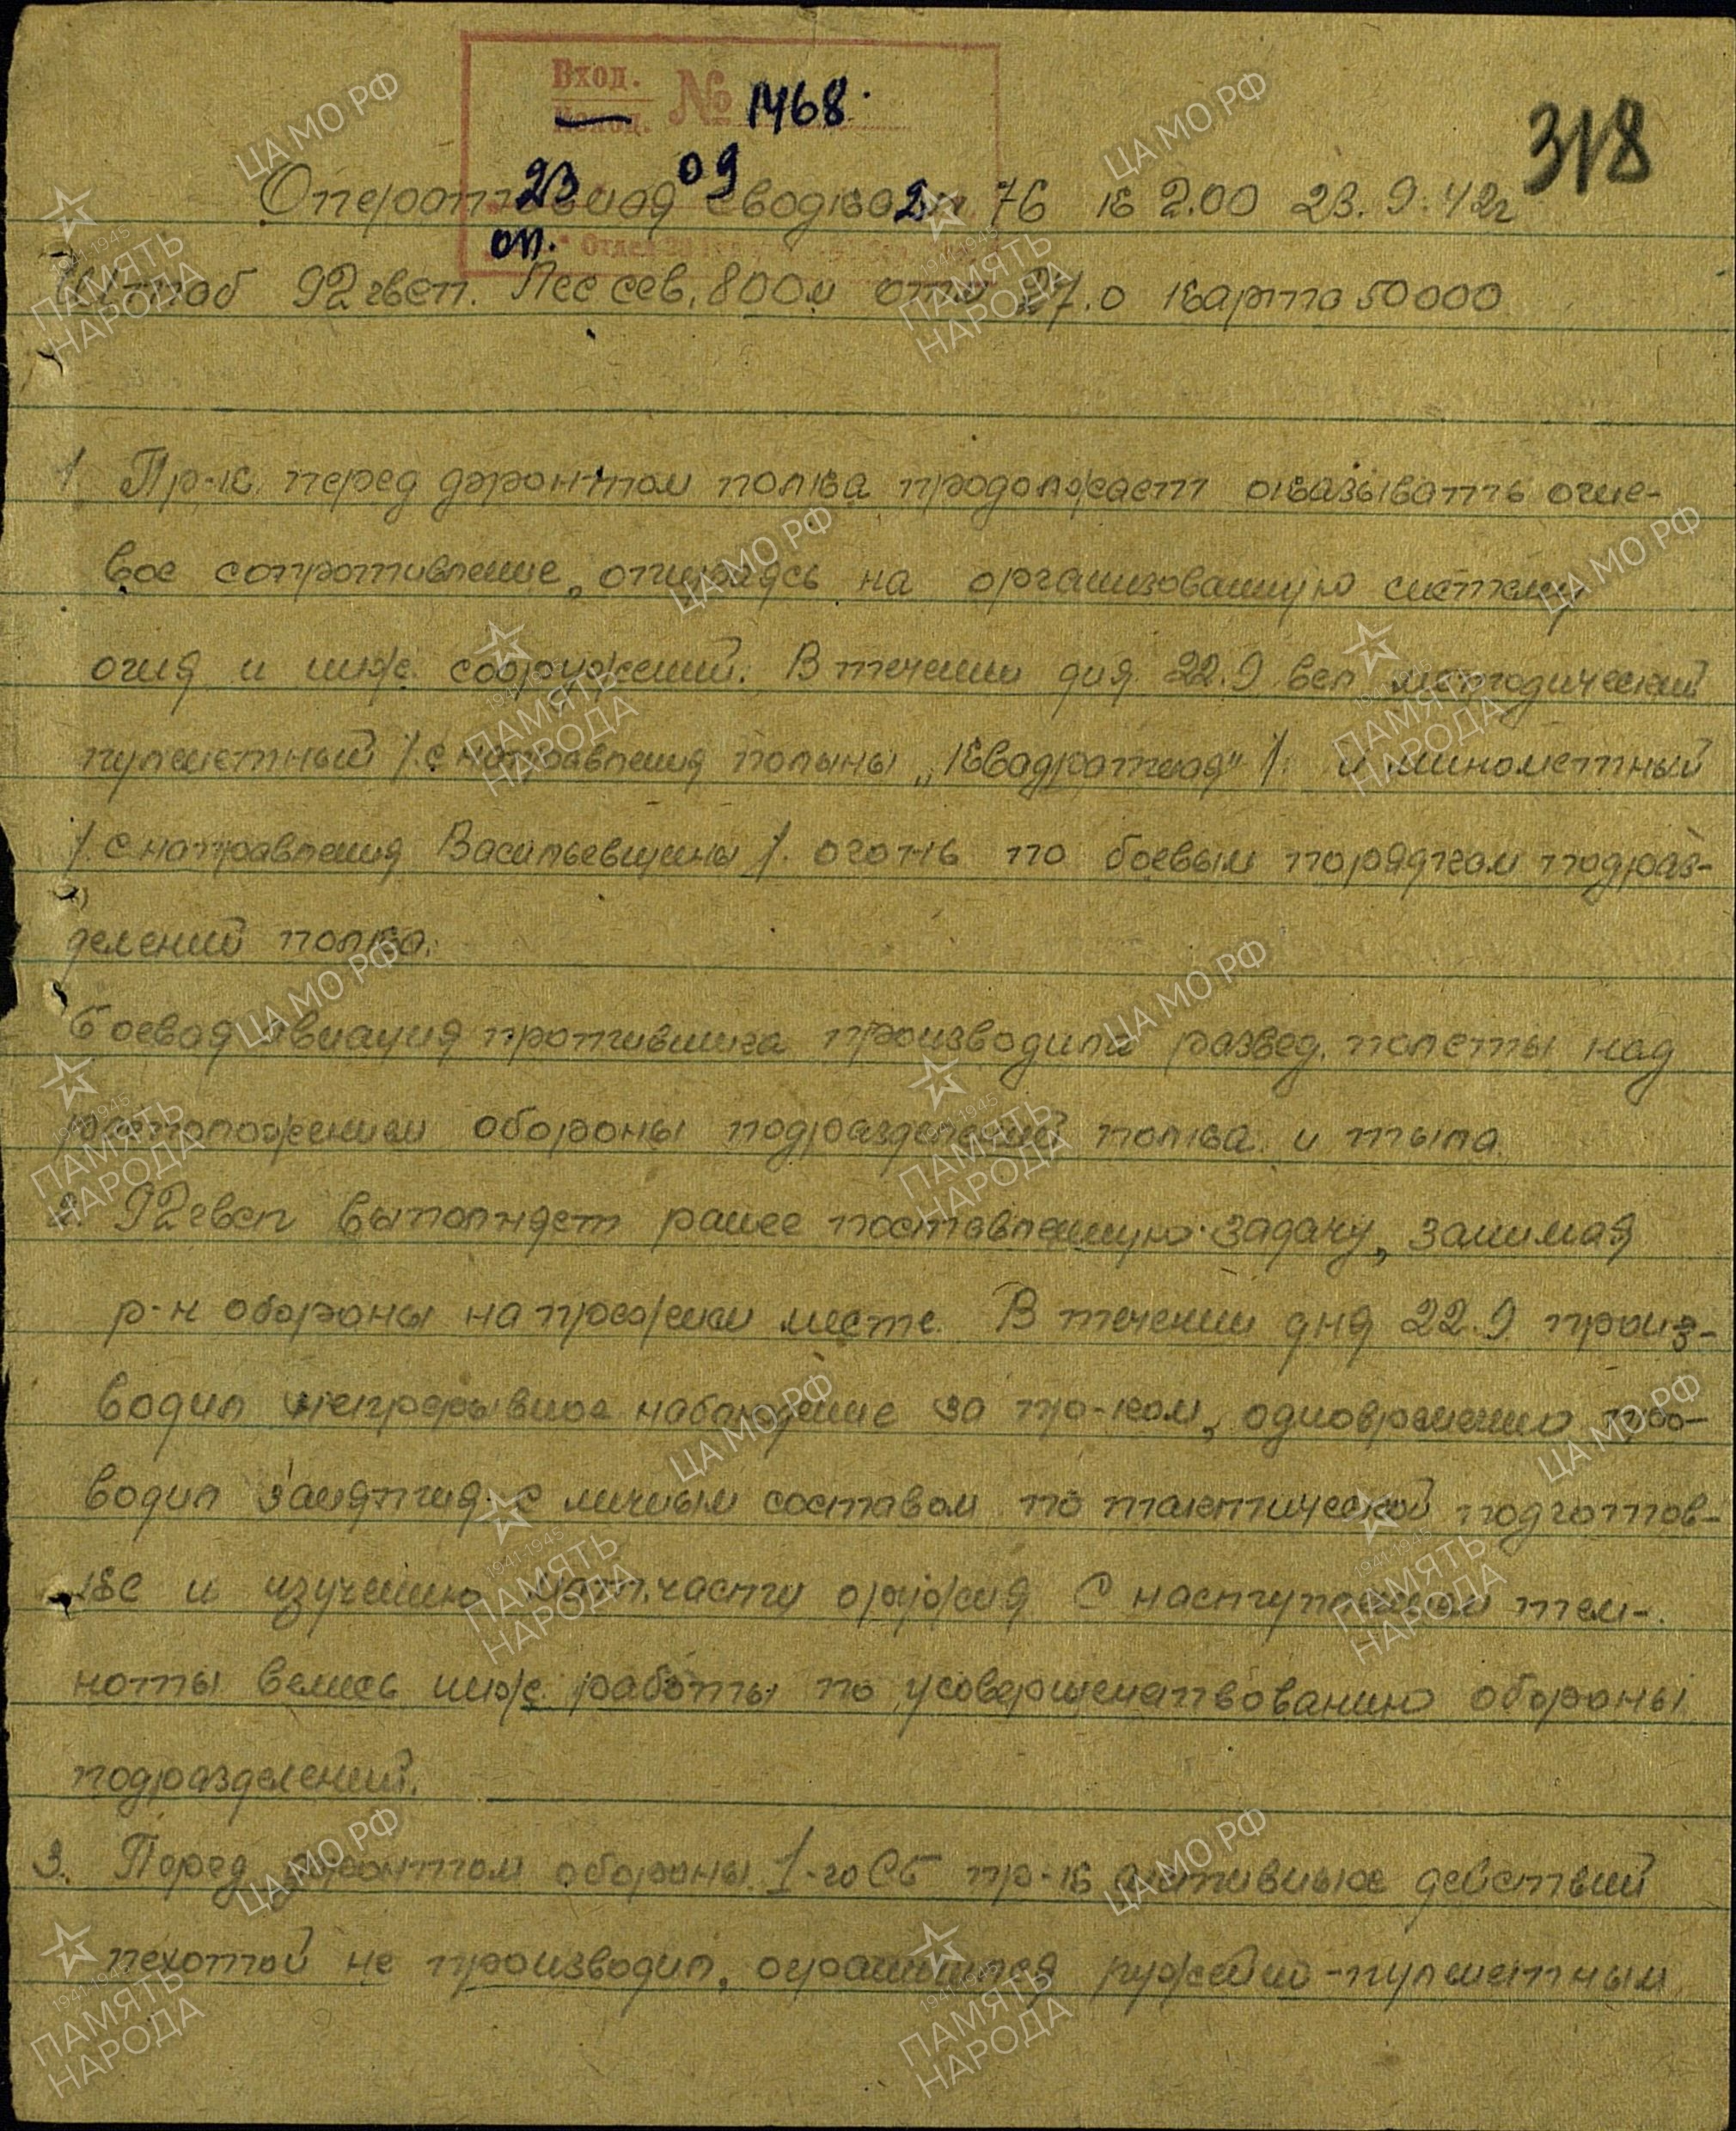 Вход. № 1468.
Исход.
318
23 09 2
Оперативная сводка № 76 к 2.00 23.9.42г
оп. Отдел
Штаб 92 гвсп. Лес сев. 800м отм 27.0 карта 50000
1. Пр-к перед фронтом полка продолжает оказывать огне-
вое сопротивление, опираясь на организованную систему
огня и инж. сооружений. В течении дня 22.9 вел методический
пулеметный /с направления поляны „Квадратная"/ и минометный
/с направления Васильевщины/ огонь по боевым порядкам подраз-
делений полка.
Боевая авиация противника производила развед. полеты над
расположением обороны подразделений полка и тыла.
2. 92 гвсп выполняет ранее поставленную задачу, занимая
р-н обороны на прежнем месте. В течении дня 22.9 произ-
водил непрерывное наблюдение за пр-ком, одновременно про-
водил занятия с личным составом по тактической подготов-
ке и изучению мат.части оружия С наступлением тем-
ноты велись инж. работы по усовершенствованию обороны
подразделений.
3. Перед фронтом обороны 1-го СБ пр-к активных действий
пехотой не производил, ограничился ружейно-пулеметным
ЦАМО РФ
1941-1945
ПАМЯТЬ
НАРОДА